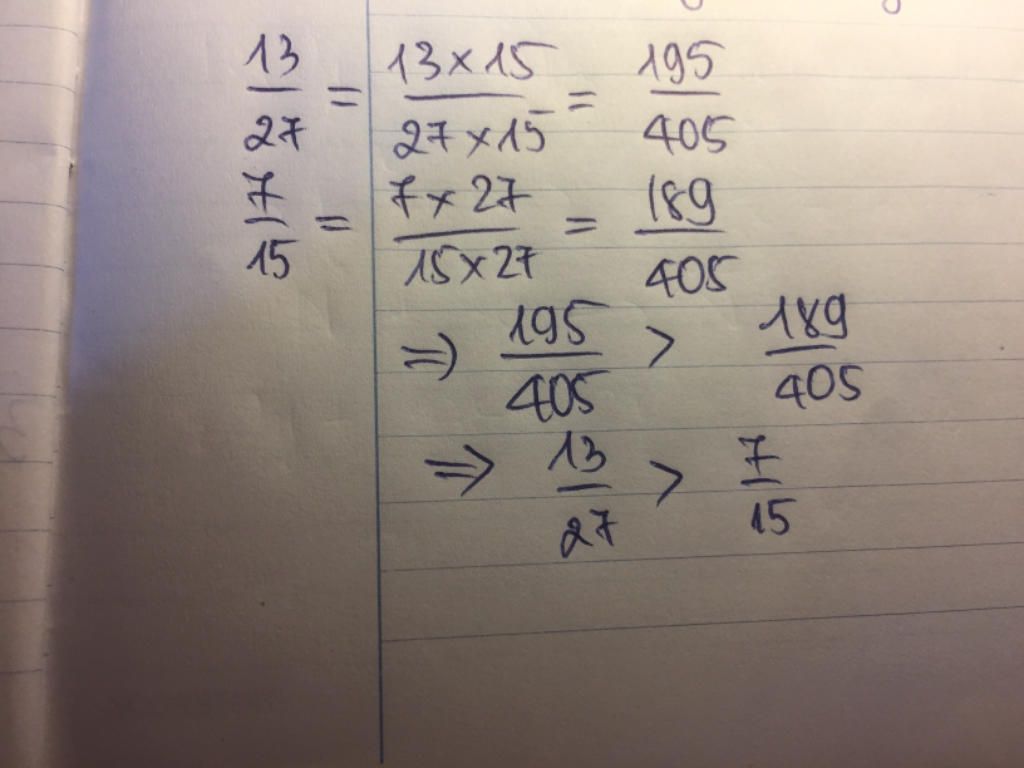 13/27 = 13×15/27×15 = 195/405
7/15 = 7×27/15×27 = 189/405
=> 195/405 > 189/405
=> 13/27 > 7/15